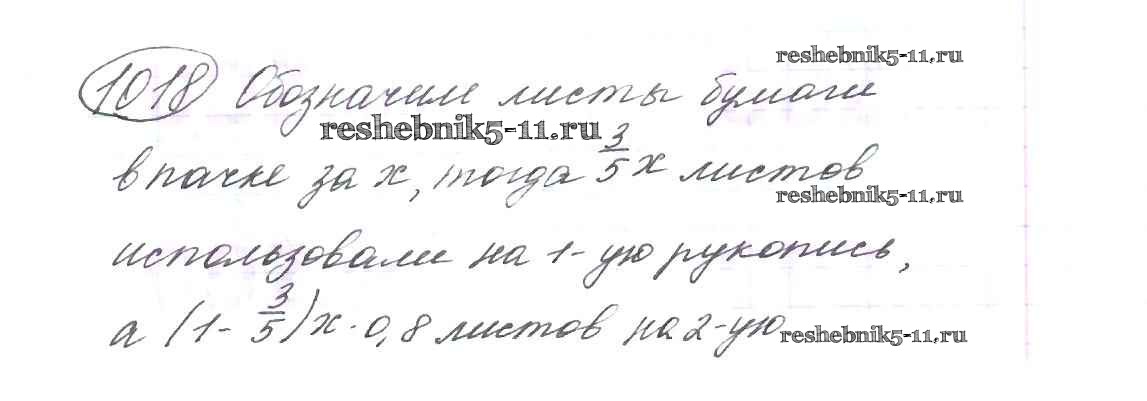 reshebnik5-11.ru
1018 Обозначим листы бумаги
reshebnik5-11.ru
в пачке за x, тогда 3/5 x листов
reshebnik5-11.ru
использовали на 1-ую рукопись,
а (1- 3/5)x · 0,8 листов на 2-ую
reshebnik5-11.ru